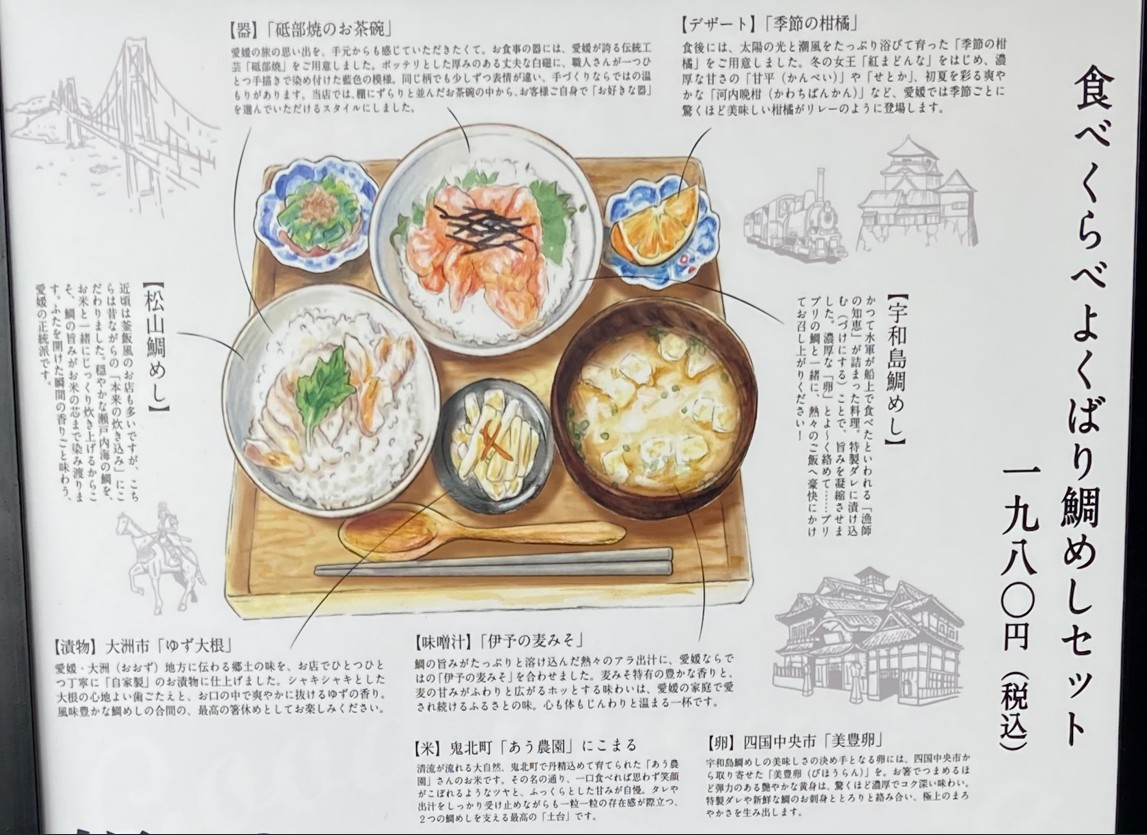 食べくらべよくばり鯛めしセット
一九八〇円(税込)
【器】「砥部焼のお茶碗」
愛媛の旅の思い出を、手元からも感じていただきたくて。お食事の器には、愛媛が誇る伝統工
芸「砥部焼」をご用意しました。ポッテリとした厚みのある丈夫な白磁に、職人さんが一つひ
とつ手描きで染め付けた藍色の模様。同じ柄でも少しずつ表情が違い、手づくりならではの温
もりがあります。当店では、棚にずらりと並んだお茶碗の中から、お客様ご自身で「お好きな器」
を選んでいただけるスタイルにしました。
【デザート】「季節の柑橘」
食後には、太陽の光と潮風をたっぷり浴びて育った「季節の柑
橘」をご用意しました。冬の女王「紅まどんな」をはじめ、濃
厚な甘さの「甘平（かんぺい）」や「せとか」、初夏を彩る爽や
かな「河内晩柑（かわちばんかん）」など、愛媛では季節ごとに
驚くほど美味しい柑橘がリレーのように登場します。
【宇和島鯛めし】
かつて水軍が船上で食べたといわれる「漁師
の知恵」が詰まった料理。特製ダレに漬け込
む（づけにする）ことで、旨みを凝縮させま
した。濃厚な「卵」とよ〜く絡めて……プリ
プリの鯛と一緒に、熱々のご飯へ豪快にかけ
てお召し上がりください！
【松山鯛めし】
近頃は釜飯風のお店も多いですが、こち
らは昔ながらの「本来の炊き込み」にこ
だわりました。穏やかな瀬戸内海の鯛を、
お米と一緒にじっくり炊き上げるからこ
そ、鯛の旨みがお米の芯まで染み渡りま
す。ふたを開けた瞬間の香りごと味わう、
愛媛の正統派です。
【漬物】大洲市「ゆず大根」
愛媛・大洲（おおず）地方に伝わる郷土の味を、お店でひとつひと
つ丁寧に「自家製」のお漬物に仕上げました。シャキシャキとした
大根の心地よい歯ごたえと、お口の中で爽やかに抜けるゆずの香り。
風味豊かな鯛めしの合間の、最高の箸休めとしてお楽しみください。
【味噌汁】「伊予の麦みそ」
鯛の旨みがたっぷりと溶け込んだ熱々のアラ出汁に、愛媛ならで
はの「伊予の麦みそ」を合わせました。麦みそ特有の豊かな香りと、
麦の甘みがふわりと広がるホッとする味わいは、愛媛の家庭で愛
され続けるふるさとの味。心も体もじんわりと温まる一杯です。
【米】鬼北町「あう農園」にこまる
清流が流れる大自然、鬼北町で丹精込めて育てられた「あう農
園」さんのお米です。その名の通り、一口食べれば思わず笑顔
がこぼれるようなツヤと、ふっくらとした甘みが自慢。タレや
出汁をしっかり受け止めながらも一粒一粒の存在感が際立つ、
２つの鯛めしを支える最高の「土台」です。
【卵】四国中央市「美豊卵」
宇和島鯛めしの美味しさの決め手となる卵には、四国中央市か
ら取り寄せた「美豊卵（びほうらん）」を。お箸でつまめるほ
ど弾力のある艶やかな黄身は、驚くほど濃厚でコク深い味わい。
特製ダレや新鮮な鯛のお刺身ととろりと絡み合い、極上のまろ
やかさを生み出します。